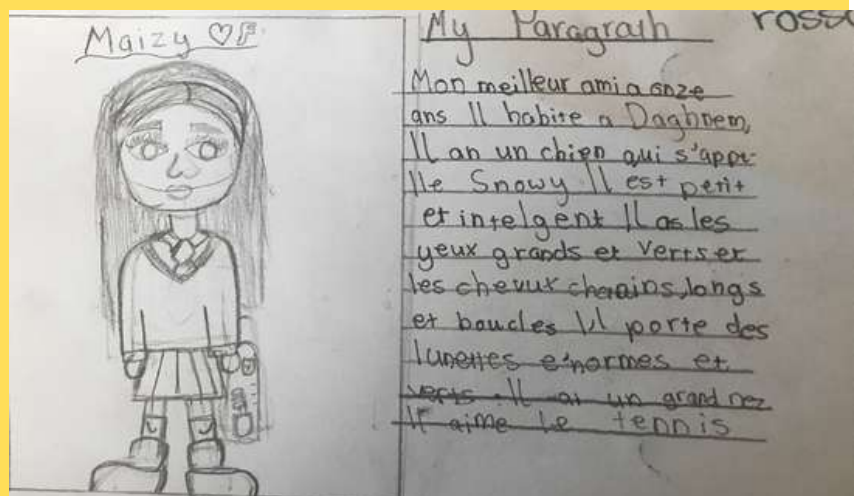 Maizy ♡F
My Paragrath
Mon meilleur ami a onze
ans Il habite a Daghnem,
Il an un chien qui s'appe-
lle Snowy Il est petit
et intelgent Il as les
yeux grands et verts et
les chevux chatains, longs
et boucles Il porte des
lunettes e'normes et
verts. Il ai un grand nez
Il aime le tennis